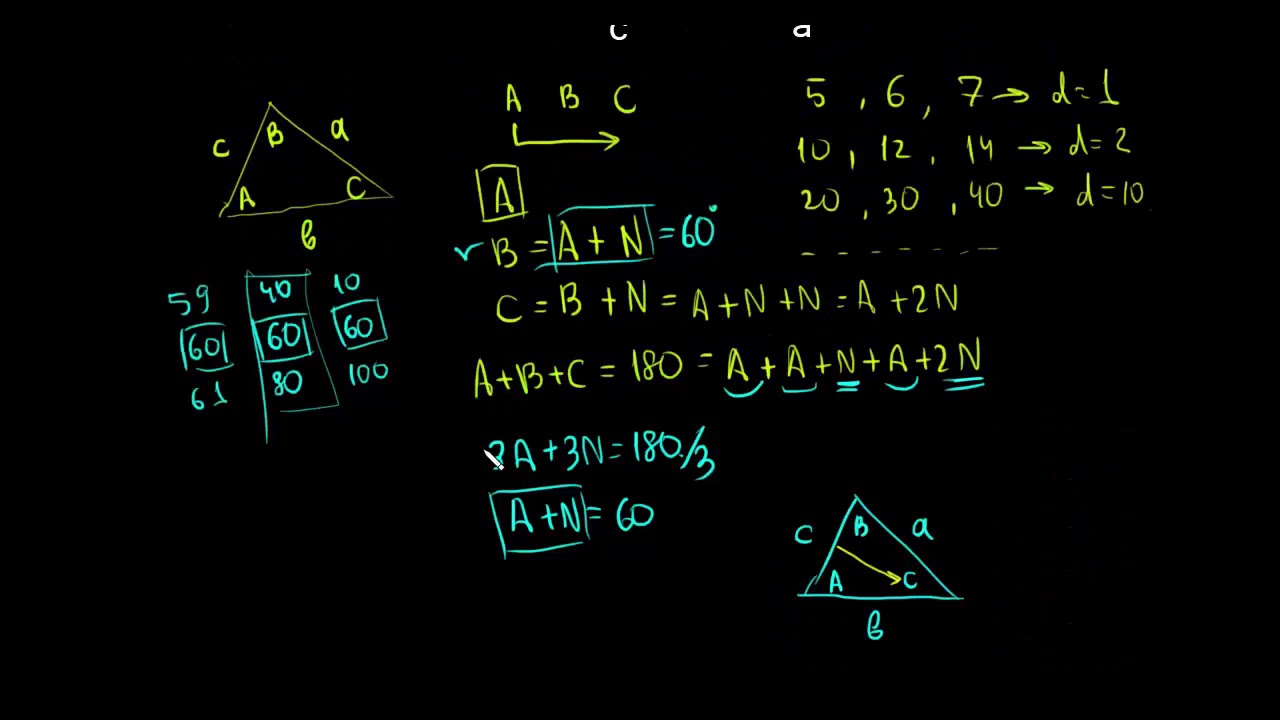 c a
A B C
5 , 6 , 7 → d=1
10 , 12 , 14 → d=2
20 , 30 , 40 → d=10
c B a
A C
в
A
B = A + N = 60°
C = B + N = A + N + N = A + 2N
A+B+C = 180 = A + A + N + A + 2N
59 40 10
60 60 60
61 80 100
3A + 3N = 180/3
A + N = 60
c B a
A C
в